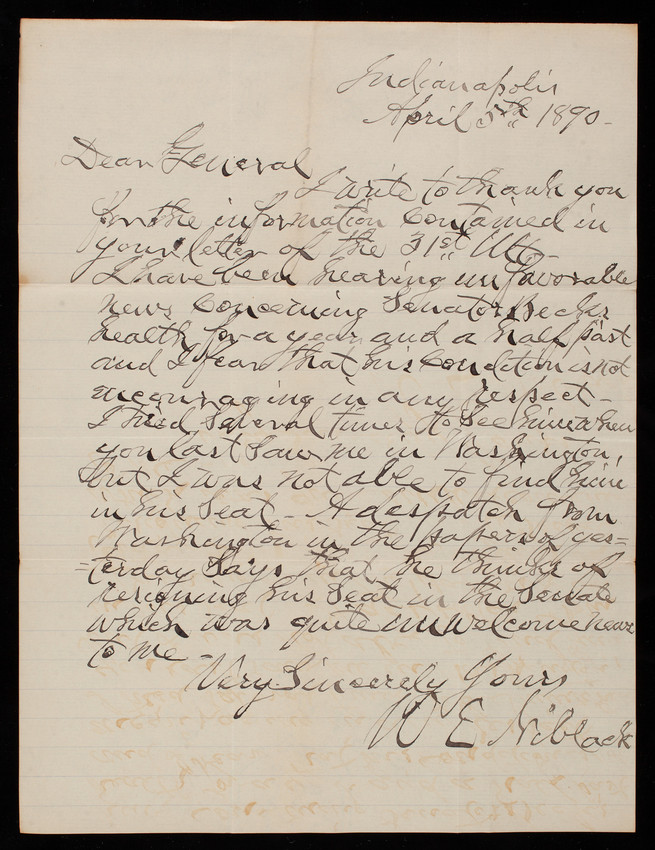 Indianapolis
April 5th 1890-
Dear General
I write to thank you
for the information contained in
your letter of the 31st Ulto-
I have been hearing unfavorable
news concerning Senator Becks
health for a year and a half past
and I fear that his condition is not
encouraging in any respect-
I tried several times to see him when
you last saw me in Washington,
but I was not able to find him
in his seat- A despatch from
Washington in the papers of yes=
=terday says that he thinks of
resigning his seat in the Senate
which was quite unwelcome news
to me-
Very Sincerely Yours
W E Niblack